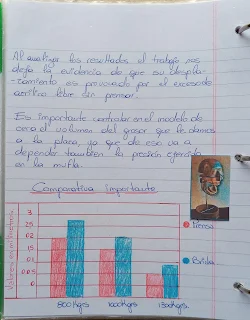 Al analizar los resultados el trabajo nos
deja la evidencia de que su despla-
zamiento es provocado por el exceso de
acrilico libre sin prensar.
Es importante controlar en el modelo de
cera el volumen del grosor que le damos
a la placa, ya que de eso va a
depender tambien la presión ejercida
en la mufla.
Comparativa importante
Valores en milimetros
3
25
02
15
01
0.05
0
800Kgrs
1000Kgrs
1500Kgrs.
Prensa
Brida